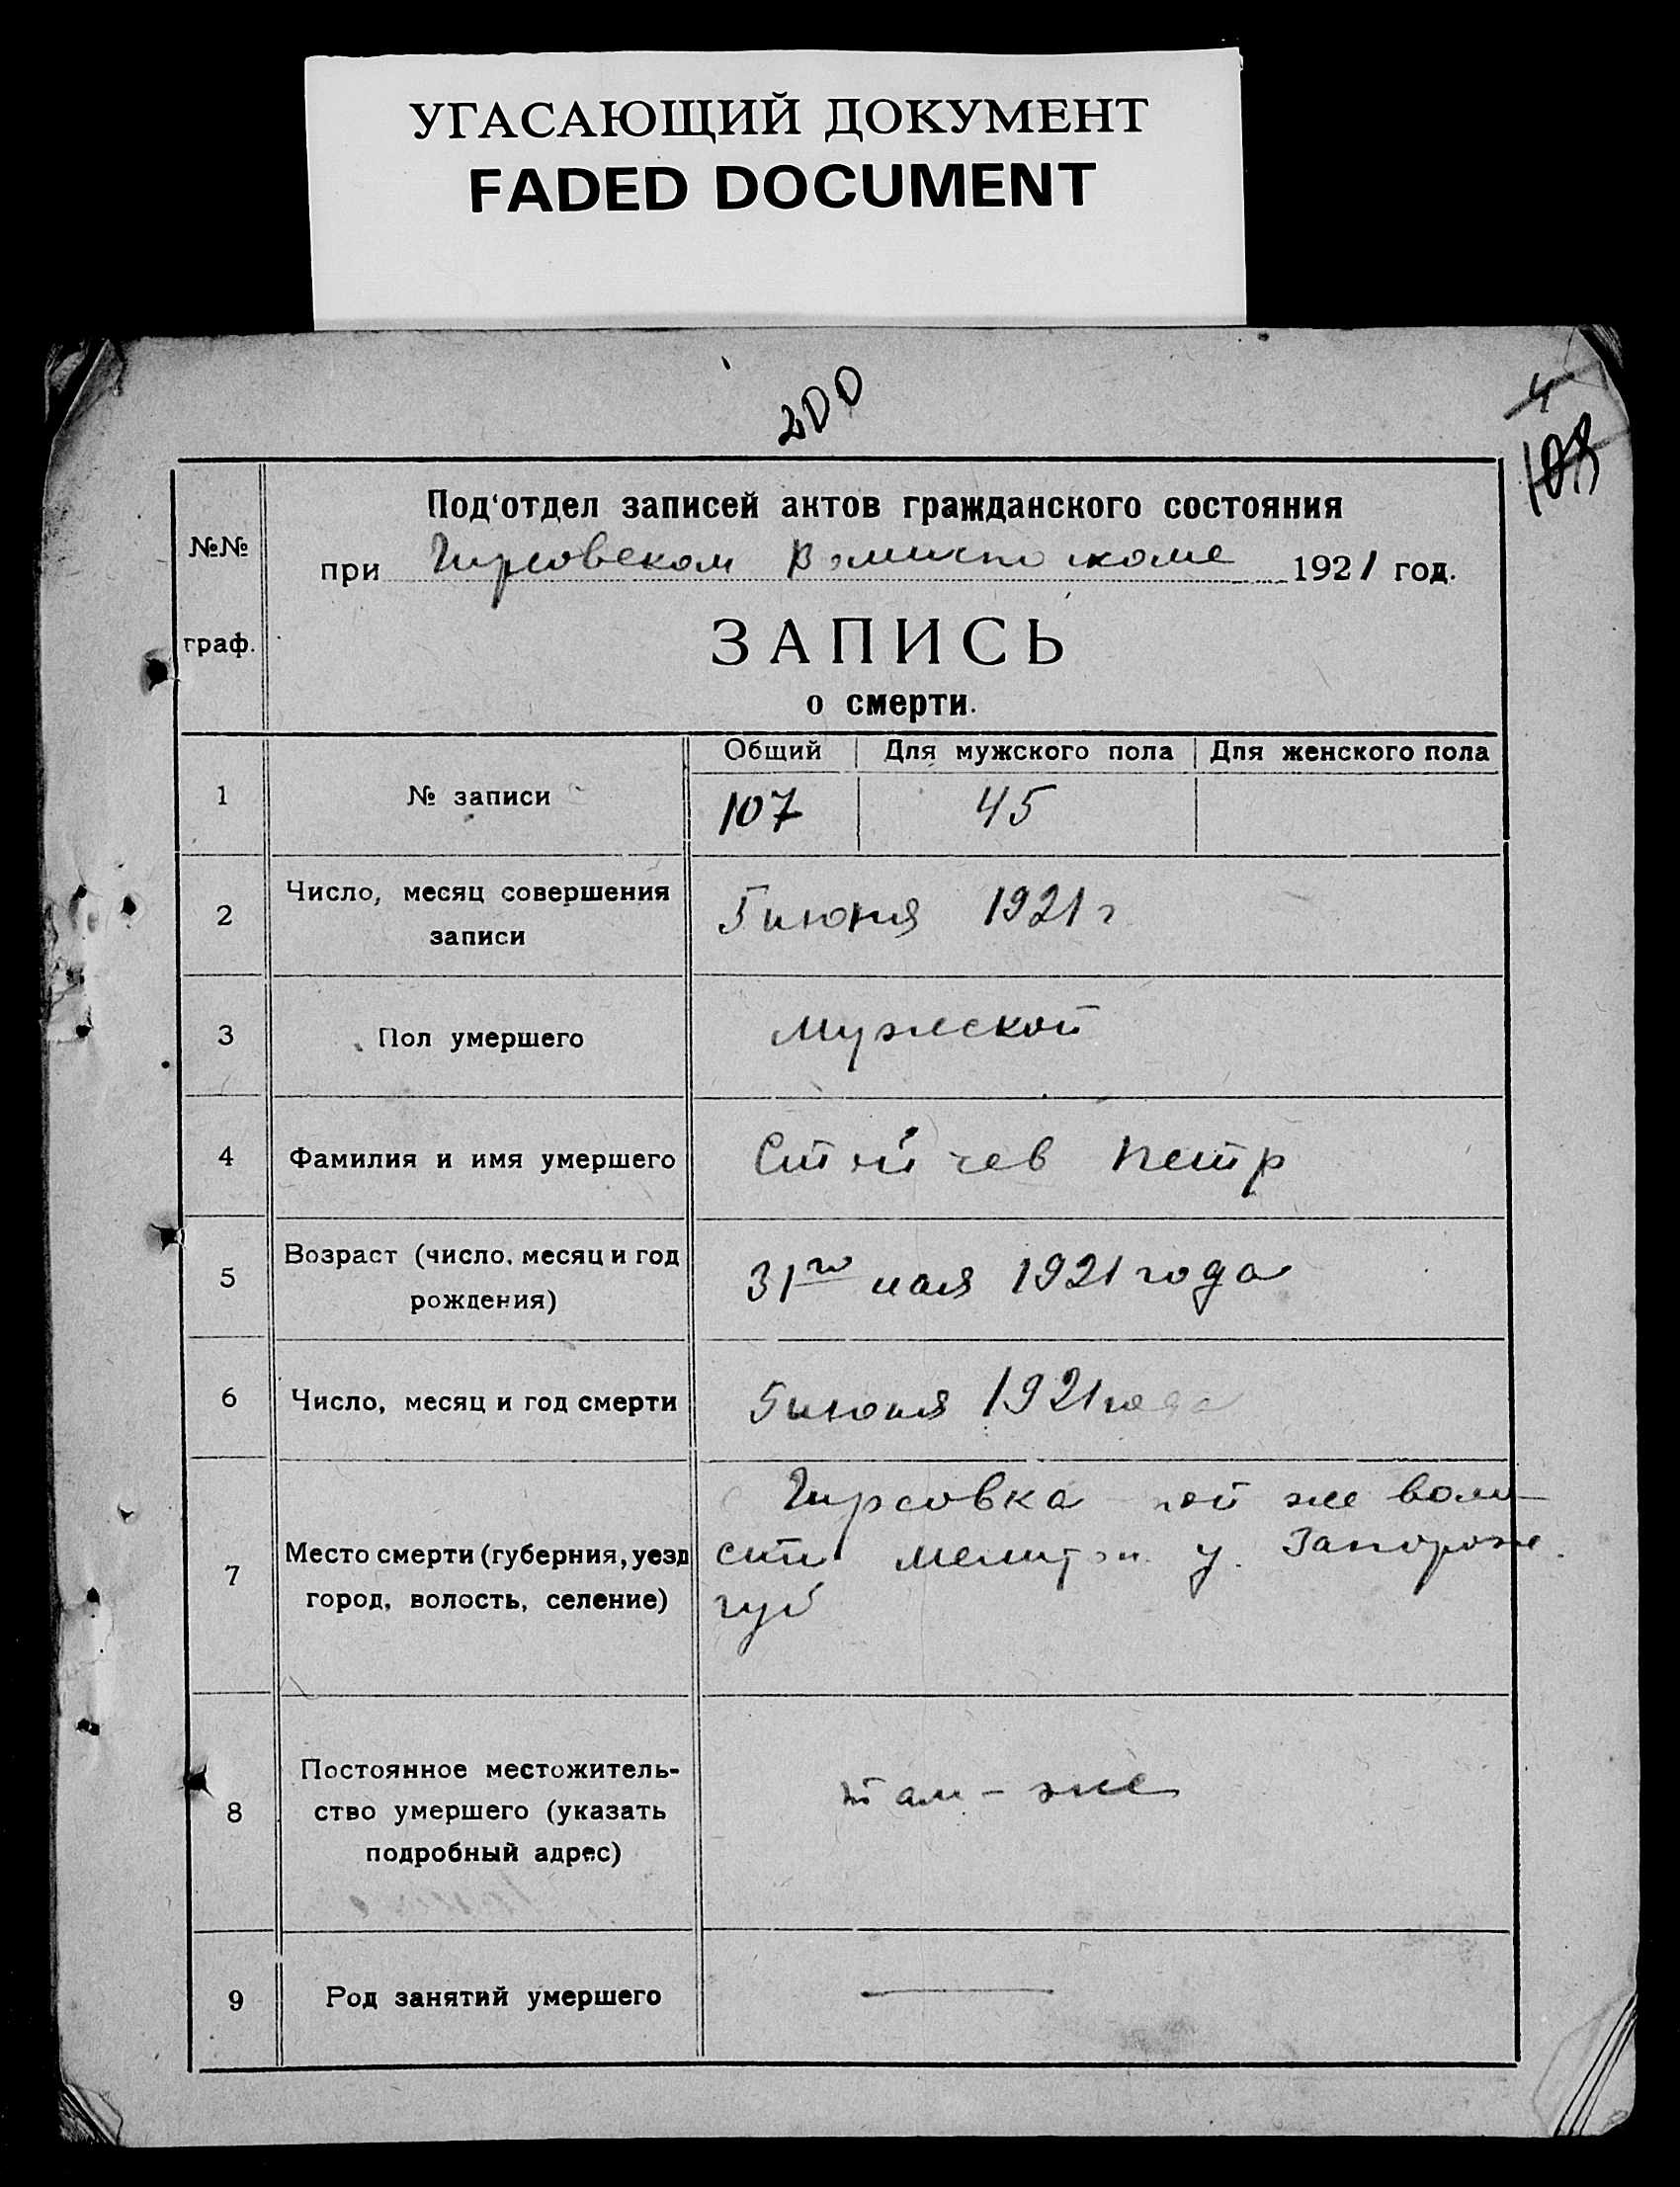 УГАСАЮЩИЙ ДОКУМЕНТ
FADED DOCUMENT
200
4
108
Под'отдел записей актов гражданского состояния
№№
при Гирсовском Волисполкоме 1921 год.
граф.
ЗАПИСЬ
о смерти.
Общий Для мужского пола Для женского пола
1 № записи 107 45
Число, месяц совершения
2 5 июня 1921 г
записи
3 Пол умершего Мужской
4 Фамилия и имя умершего Стойчев Петр
Возраст (число, месяц и год
5 31го мая 1921 года
рождения)
6 Число, месяц и год смерти 5 июня 1921 года
Гирсовка той же воло-
7 Место смерти (губерния, уезд сти Мелитоп. у. Запорож.
город, волость, селение) губ
Постоянное местожитель-
8 ство умершего (указать там-же
подробный адрес)
9 Род занятий умершего —